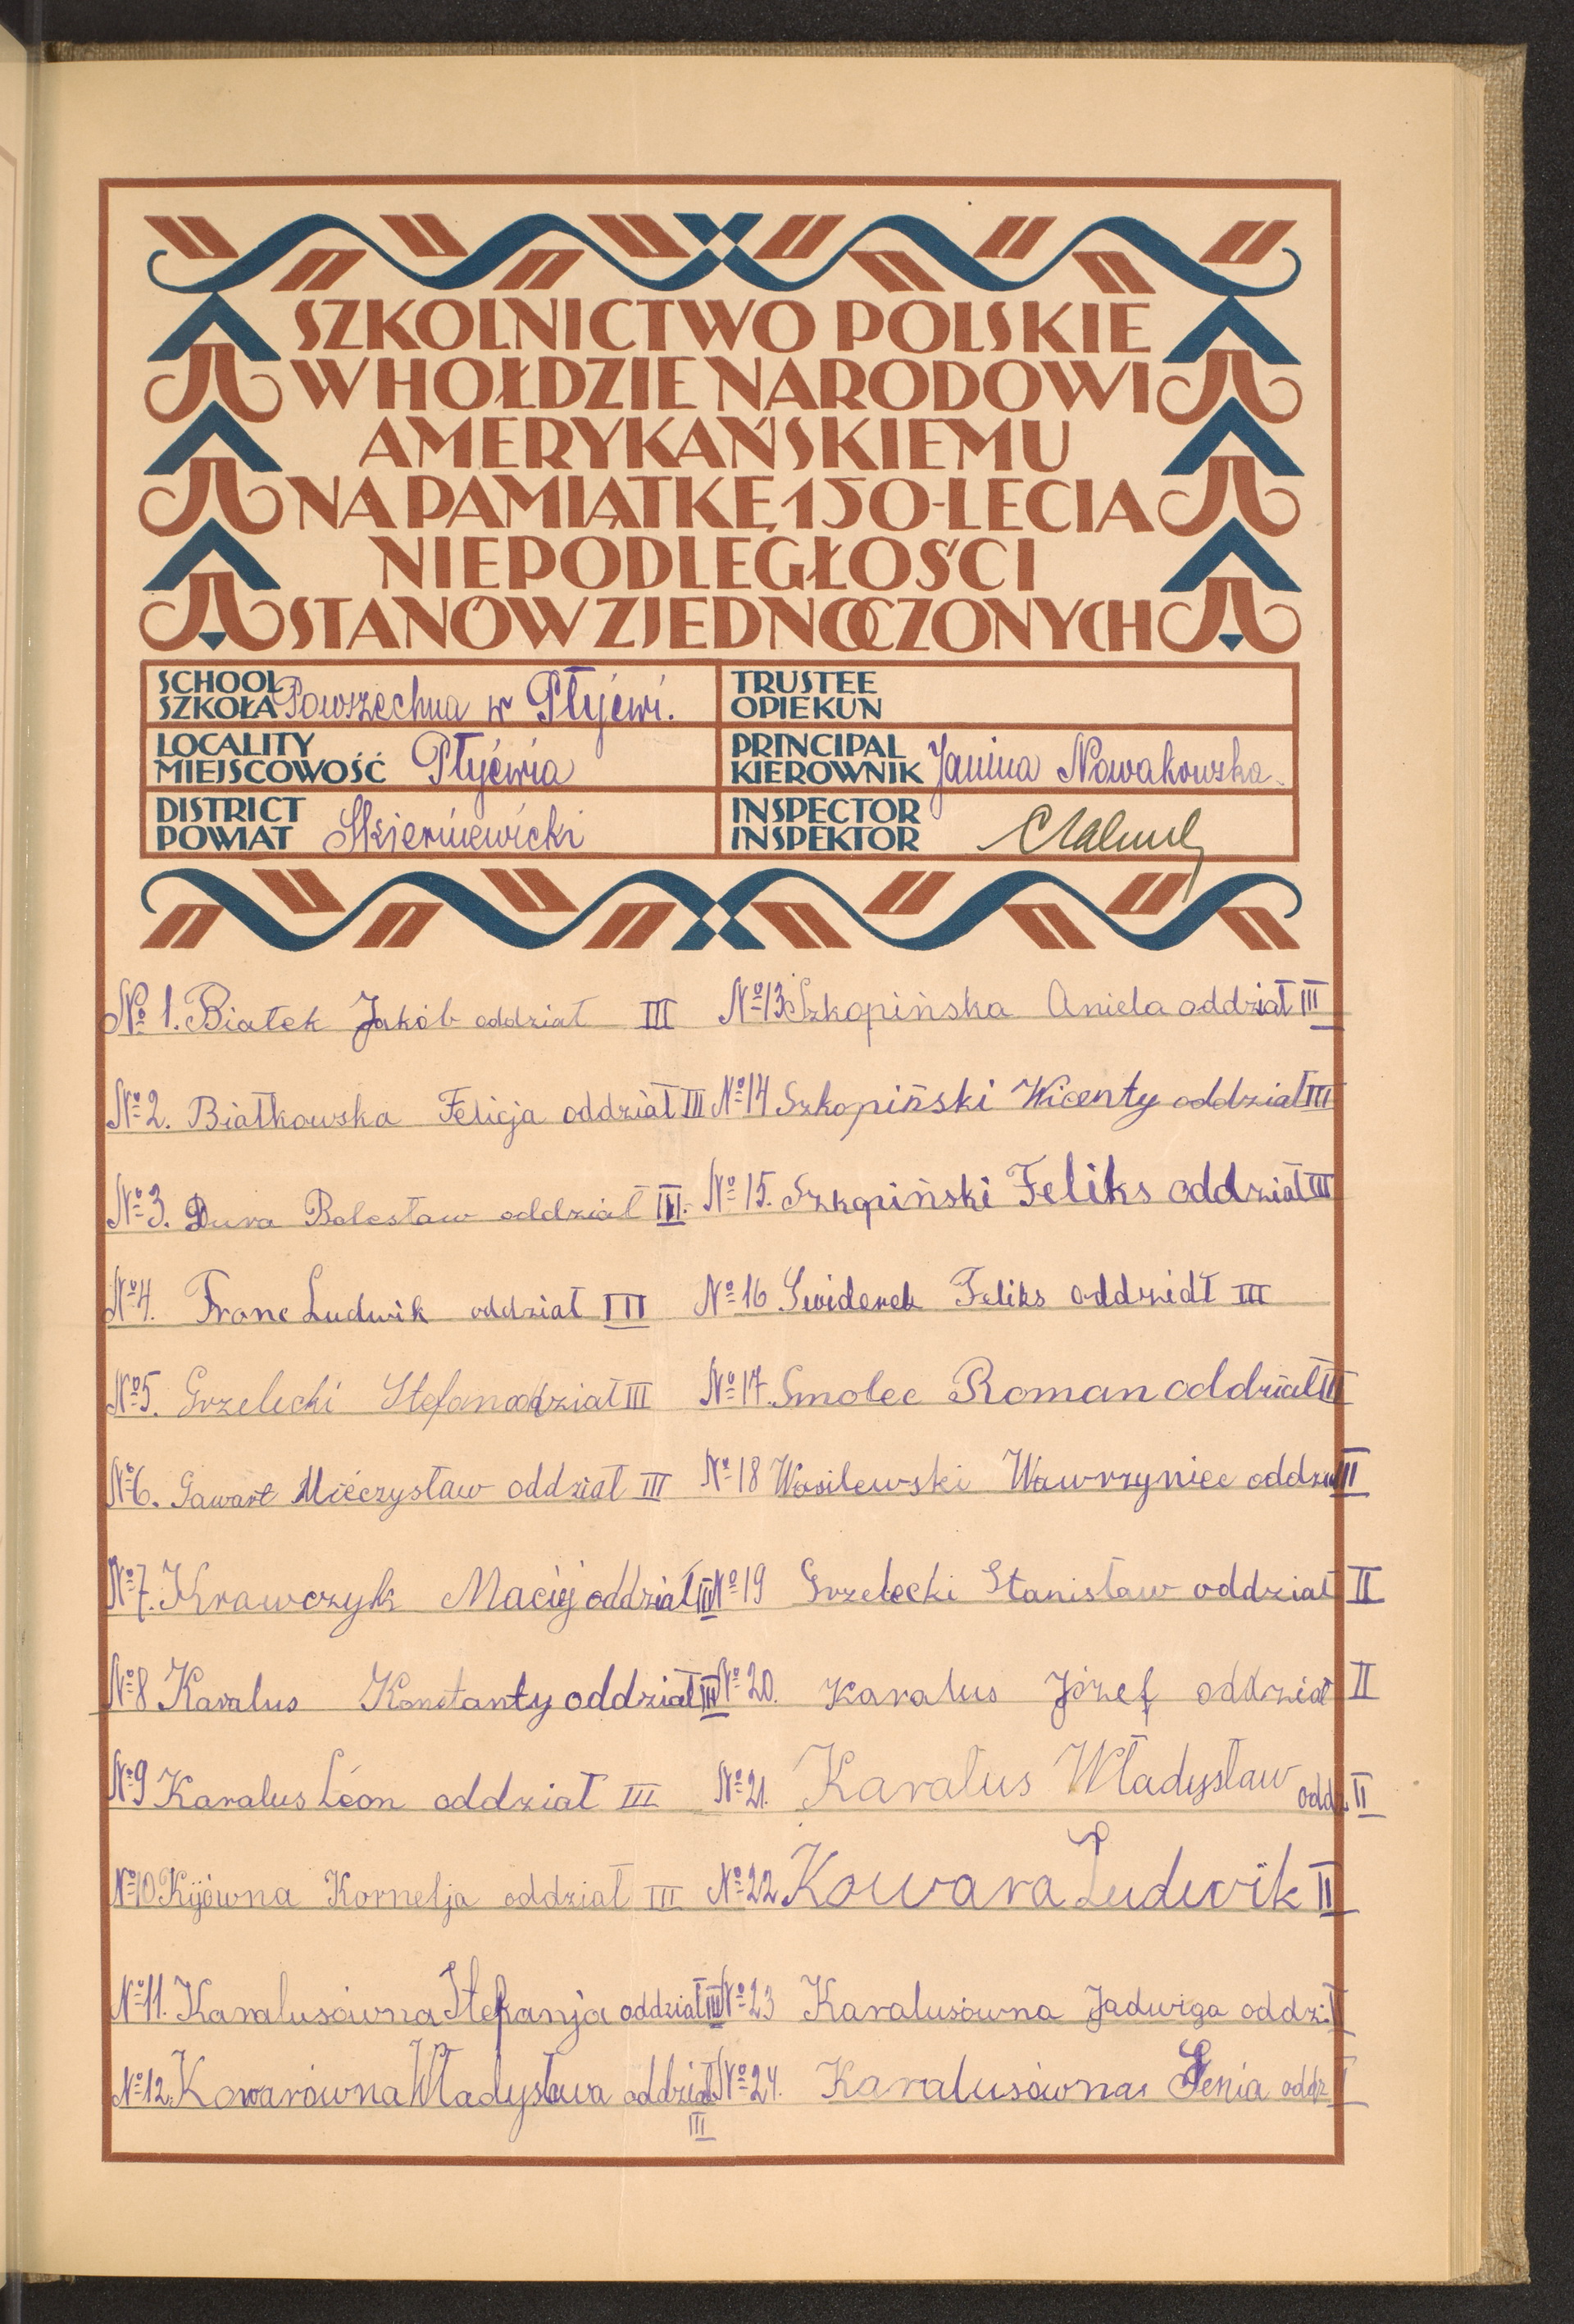 SZKOLNICTWO POLSKIE
W HOŁDZIE NARODOWI
AMERYKAŃSKIEMU
NA PAMIĄTKĘ 150-LECIA
NIEPODLEGŁOŚCI
STANÓW ZJEDNOCZONYCH
SCHOOL
SZKOŁA Powszechna w Płyćwi.
TRUSTEE
OPIEKUN
LOCALITY
MIEJSCOWOŚĆ Płyćwia
PRINCIPAL
KIEROWNIK Janina Nowakowska
DISTRICT
POWIAT Skierniewicki
INSPECTOR
INSPEKTOR
№ 1. Białek Jakób oddział III
№ 2. Białkowska Felicja oddział III
№ 3. Dura Bolesław oddział III.
№ 4. Franc Ludwik oddział III
№ 5. Grzelecki Stefan oddział III
№ 6. Gawart Miéczysław oddział III
№ 7. Krawczyk Maciej oddział III
№ 8 Karalus Konstanty oddział III
№ 9 Karalus Léon oddział III
№ 10 Kijówna Kornelja oddział III
№ 11. Karalusówna Stefanja oddział III
№ 12. Kowarówna Władysława oddział III
№ 13 Szkopińska Aniela oddział III
№ 14 Szkopiński Wicenty oddział III
№ 15. Szkopiński Feliks oddział III
№ 16 Swiderek Feliks oddział III
№ 17. Smolec Roman oddział III
№ 18 Wasilewski Wawrzyniec oddz III
№ 19 Grzelecki Stanisław oddział II
№ 20. Karalus Józef oddział II
№ 21. Karalus Władysław odd. II
№ 22 Kowara Ludwik II
№ 23 Karalusówna Jadwiga oddz.
№ 24. Karalusówna Genia oddz I